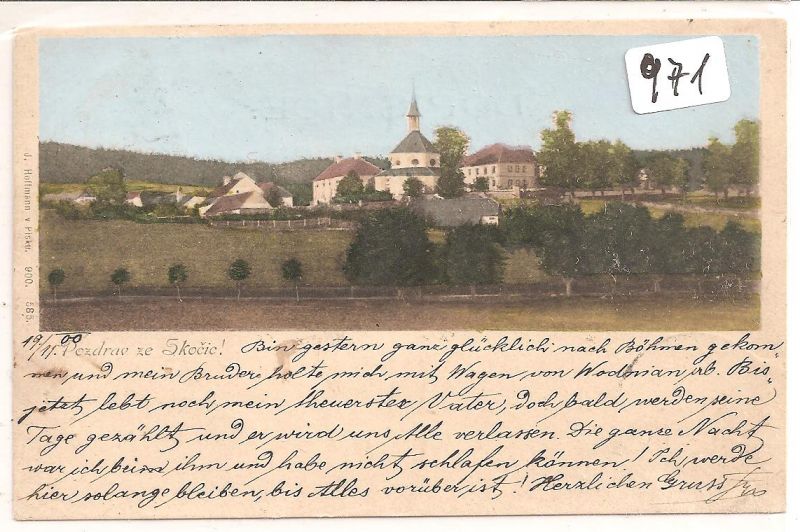 971
J. Hoffmann v Písku. 900. 585.
19/11.00
Pozdrav ze Skočic!
Bin gestern ganz glücklich nach Böhmen gekom-
men, und mein Bruder holte mich mit Wagen von Wodnian ab. Bis
jetzt lebt noch mein theuerster Vater, doch bald werden seine
Tage gezählt und er wird uns Alle verlassen. Die ganze Nacht
war ich beim ihm und habe nicht schlafen können! Ich werde
hier solange bleiben, bis Alles vorüber ist! Herzlichen Gruss